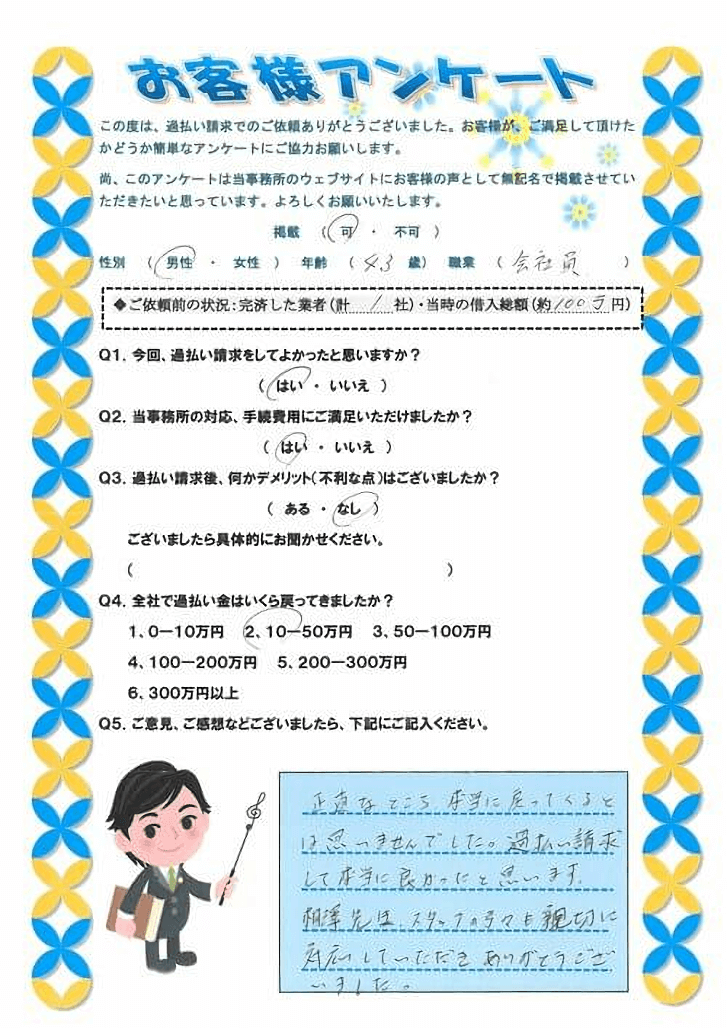 お客様アンケート
この度は、過払い請求でのご依頼ありがとうございました。お客様が、ご満足して頂けた
かどうか簡単なアンケートにご協力お願いします。
尚、このアンケートは当事務所のウェブサイトにお客様の声として無記名で掲載させてい
ただきたいと思っています。よろしくお願いいたします。
掲載 ( 可 ・ 不可 )
性別 ( 男性 ・ 女性 ) 年齢 ( 43 歳) 職業 ( 会社員 )
◆ご依頼前の状況:完済した業者(計 1 社)・当時の借入総額(約100万円)
Q1. 今回、過払い請求をしてよかったと思いますか?
( はい ・ いいえ )
Q2. 当事務所の対応、手続費用にご満足いただけましたか?
( はい ・ いいえ )
Q3. 過払い請求後、何かデメリット(不利な点)はございましたか?
( ある ・ なし )
ございましたら具体的にお聞かせください。
( )
Q4. 全社で過払い金はいくら戻ってきましたか?
1、0ー10万円 2、10ー50万円 3、50ー100万円
4、100ー200万円 5、200ー300万円
6、300万円以上
Q5. ご意見、ご感想などございましたら、下記にご記入ください。
正直なところ、本当に戻ってくると
は思いませんでした。過払い請求
して本当に良かったと思います。
相澤先生、スタッフの方々も親切に
対応していただきありがとうござ
いました。